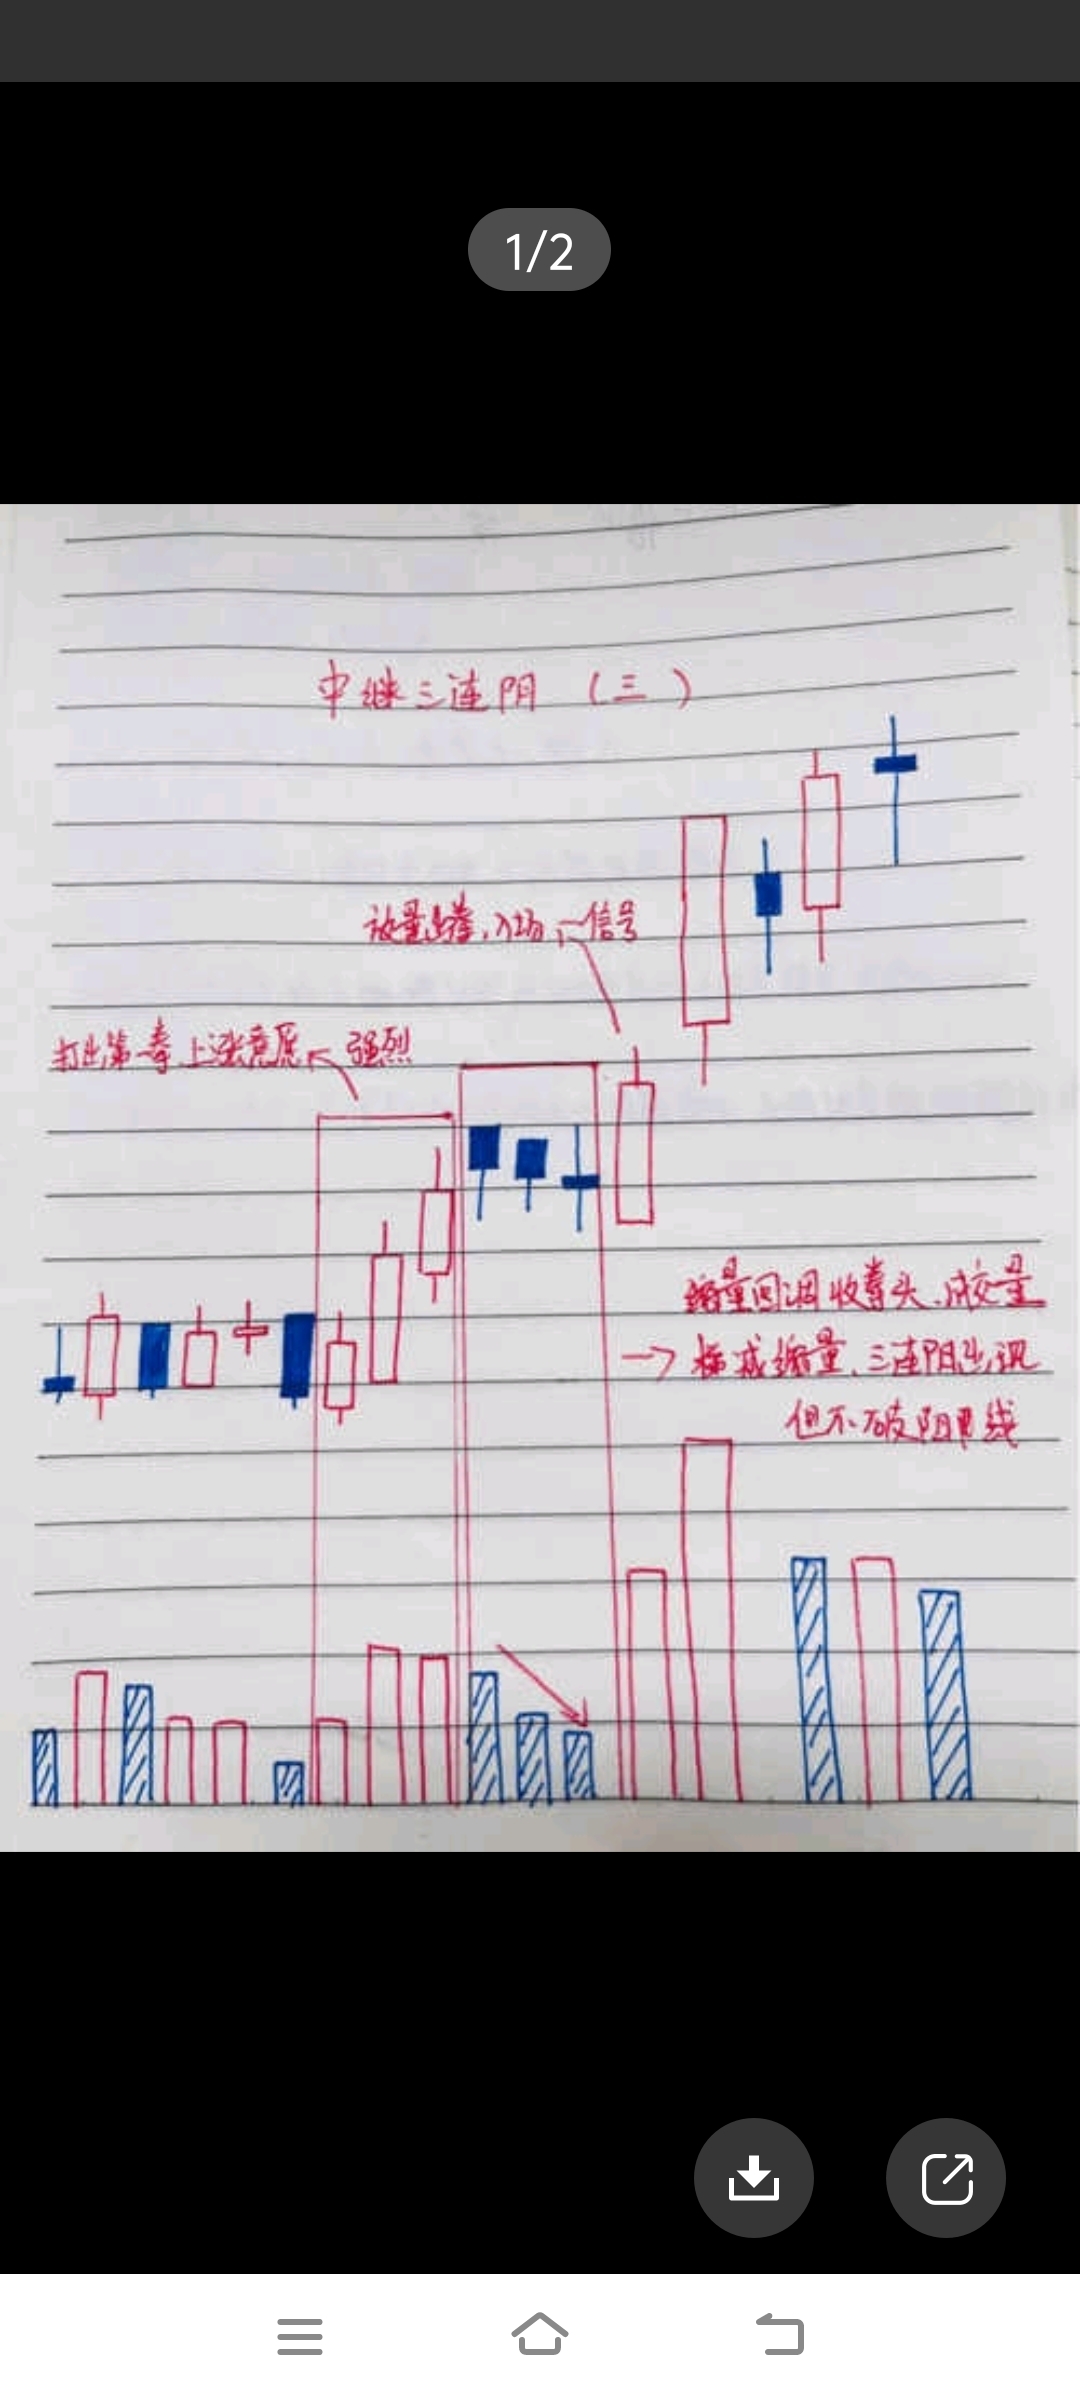 1/2
中继三连阴（三）
放量出拳.入场信号
打出第一拳上涨意愿强烈
缩量回调收拳头.成交量
递减缩量.三连阴出现
但不破阳线